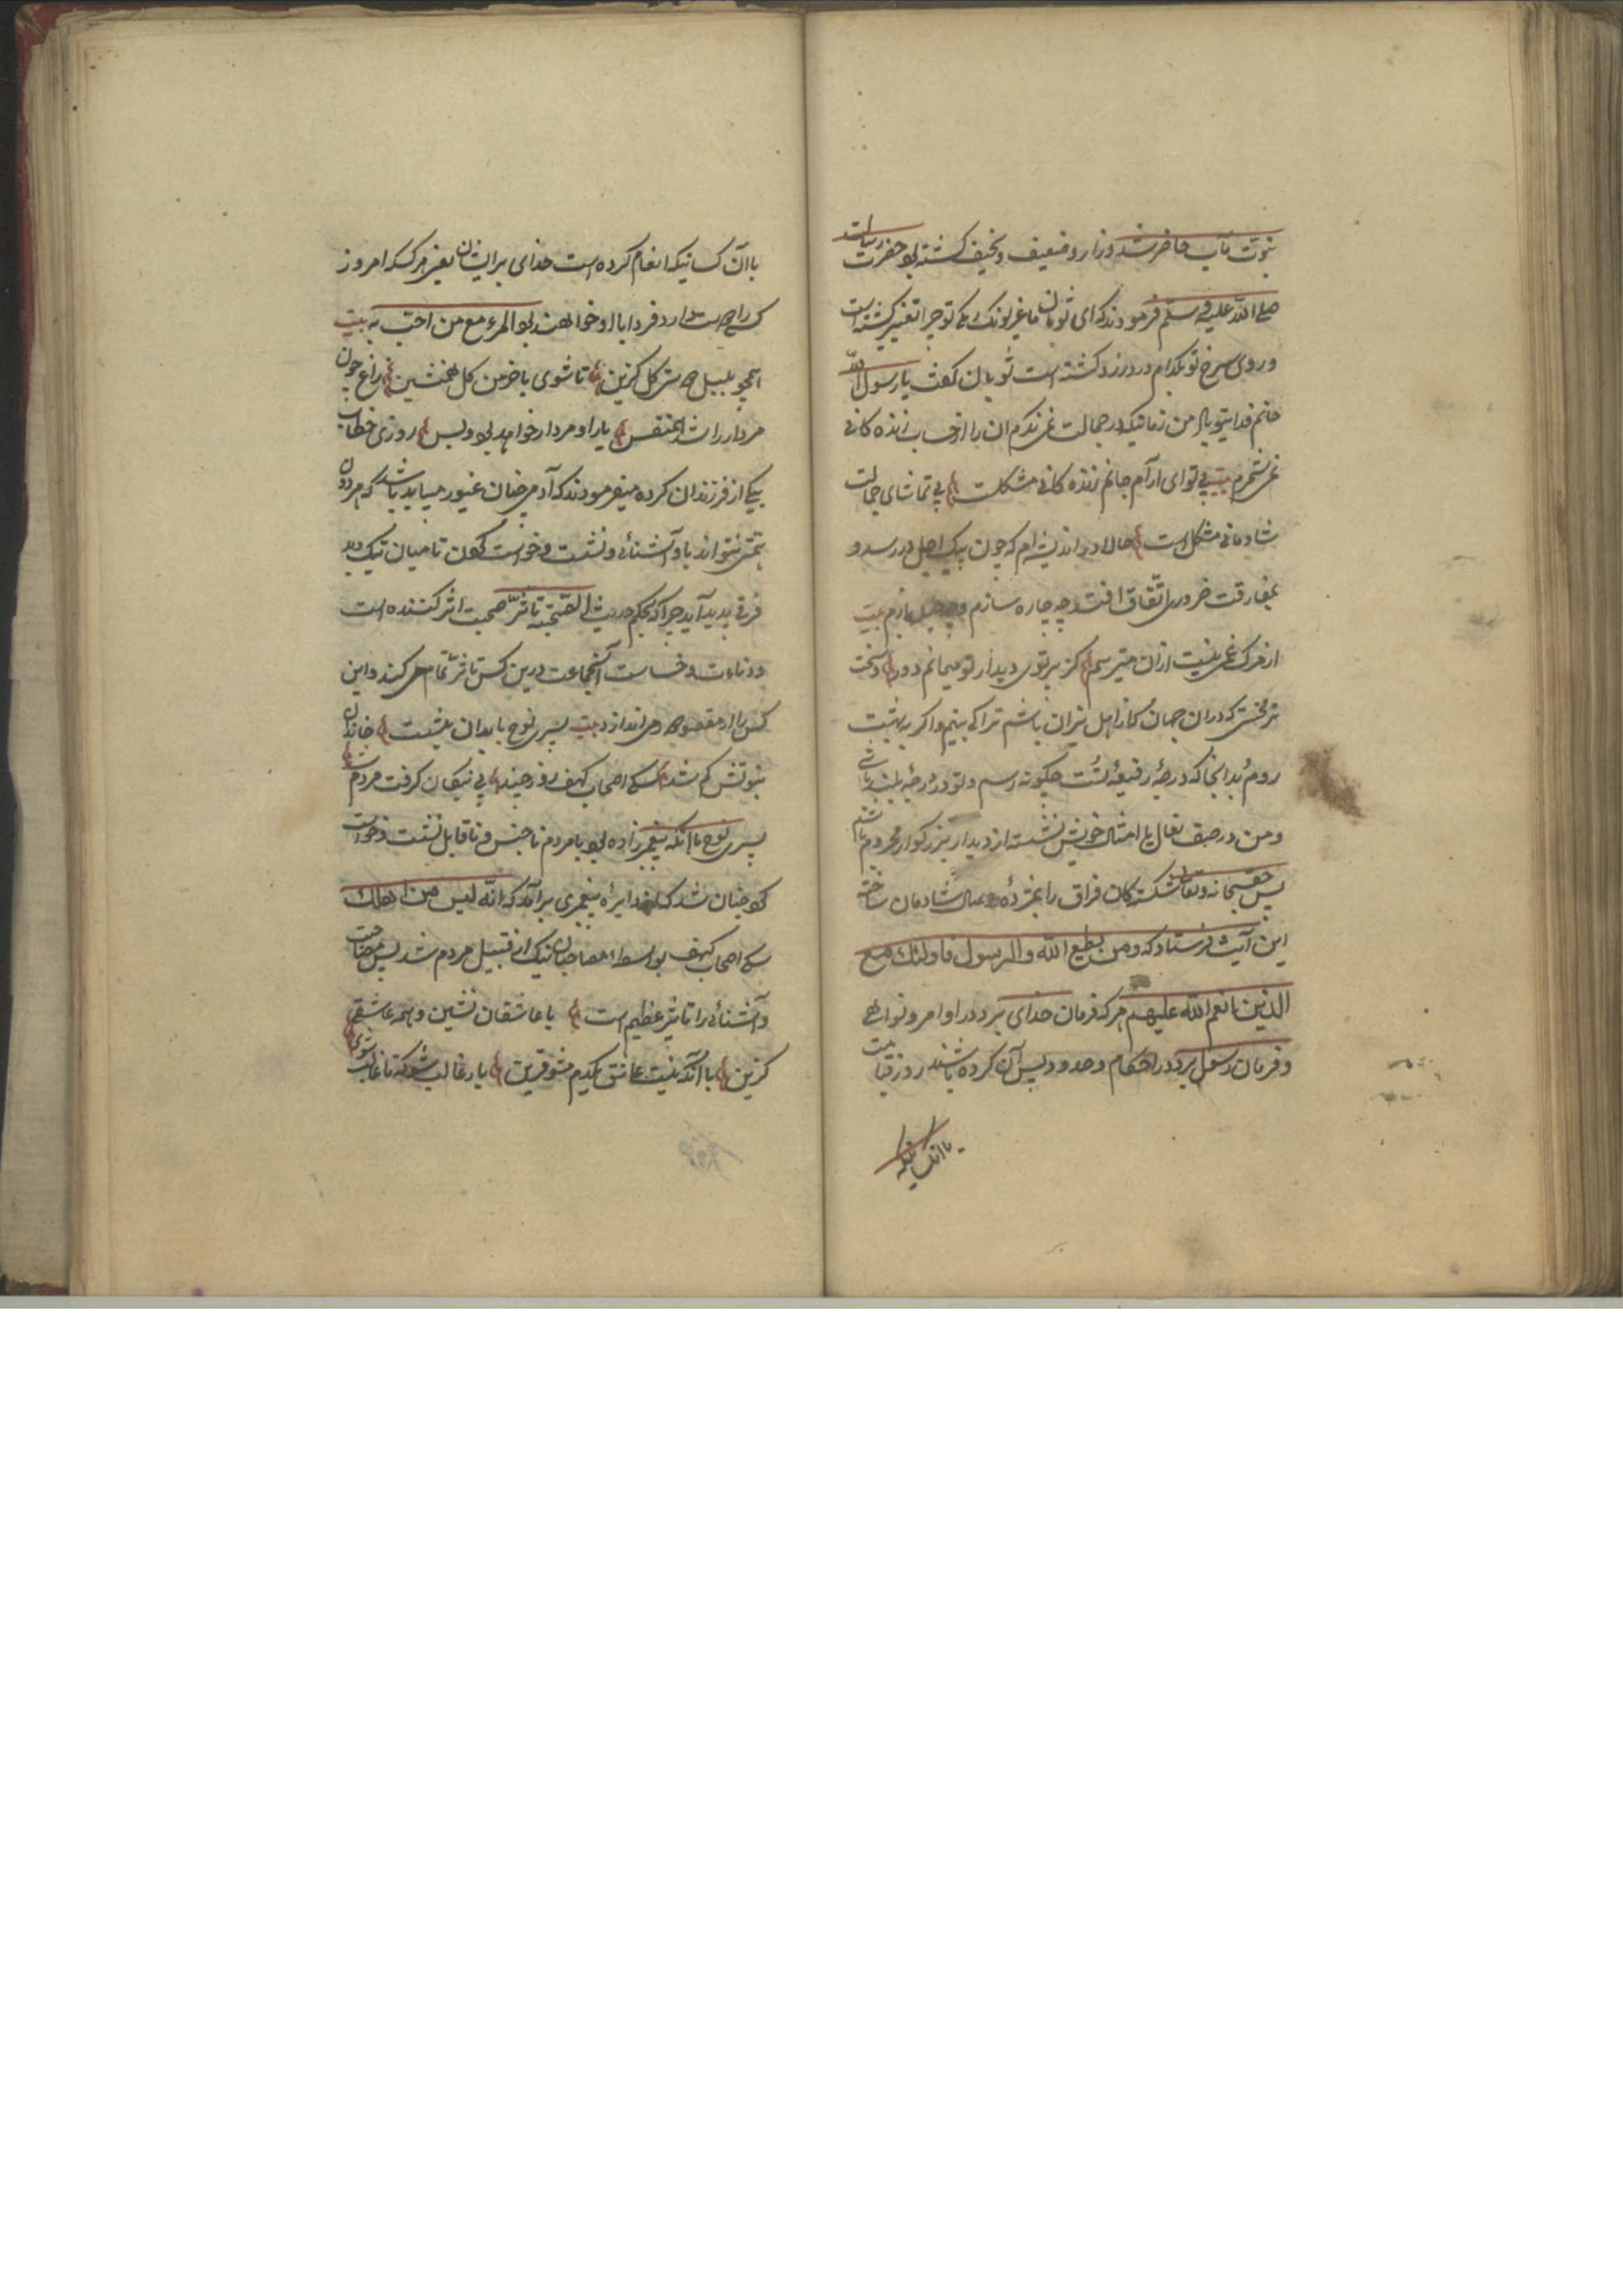 نبوت مآب حاضر شد و زار و ضعیف و نحیف کشته بود حضرت رسالت
صلی الله علیه و سلم فرمودند که ای ثوبان ما غیر لونک رنک تو چرا تغییر کشته است
و روی سرخ تو بکدام درد زرد کشته است ثوبان کفت یا رسول الله
جانم فدای تو باد من زمانیکه در جمالت نمی نکرم آن را از حساب زنده کانی
نمی شمرم بیت بی تو ای آرام جانم زنده کانی مشکلست بی تماشای جمالت
شادمانی مشکل است حالا در اندیشه ام که چون پیک اجل در رسد و
مفارقت ضروری اتفاق افتد چه چاره سازم و چه حیله بازم بیت
از مرک غمی نیست ازان میترسم کز پرتوی دیدار تو میمانم دور و سخت
تر بختی که دران جهان کر از اهل نیران باشم ترا کی بینم و اکر به بهشت
روم بدانجا که درجهٔ رفیعهٔ تست چکونه رسم و تو در درجهٔ بلند باشی
و من در صف نعال با امثال خویش نشسته از دیدار بزرکوار محروم باشم
پس حق سبحانه و تعالی شکسته کان فراق را بمژدهٔ وصال شادمان ساخته
این آیت فرستاد که و من یطع الله و الرسول فاولئک مع
الذین انعم الله علیهم هر که فرمان خدای برد در اوامر و نواهی
و فرمان رسول برد در احکام و حدود پس آن کرده باشند روز قیامت
باانکسانیکه
باآن کسانیکه انعام کرده است خدای برایشان یعنی هر کسکه امروز
کسی را دوست دارد فردا باا و خواهند بود المرء مع من احب به بیت
همچو بلبل دوستر کل کزین تا شوی با خرمن کل همنشین زاغ چون
مردار را شد همنفس یار او مردار خواهد بود و بس روزی خطاب
بیکی از فرزندان کرده میفرمودند که آدمی چنان غیور میباید باشد که مردان
نتواند با و آشنائی و نشست و خواست کردن تا میان نیک و بد
فرقی پدید آید چرا که بحکم حدیث الصحبة تاثر صحبت اثر کننده است
و دناءت و خساست آنجماعت درین کس تاثر تمام می کند و این
کس را از مقصود می اندازد بیت پسر نوح با بدان بنشست خاندان
نبوتش کم شد سک اصحاب کهف روز چند پی نیکان کرفت مردم شد
پسر نوح با آنکه پیغمبرزاده بود با مردم ناجنس و ناقابل نشست و خواست
کرد چنان شد که از دایرهٔ پیغمبری برآمد که انه لیس من اهلک
سک اصحاب کهف بواسطهٔ مصاحبان نیک از قبیل مردم شد پس مصاحبت
و آشنائی را تاثیر عظیم است با عاشقان نشین و همه عاشقی
کزین با آنکه نیست عاشق یکدم مشو قرین یار غالب شو که تا غالب شوی